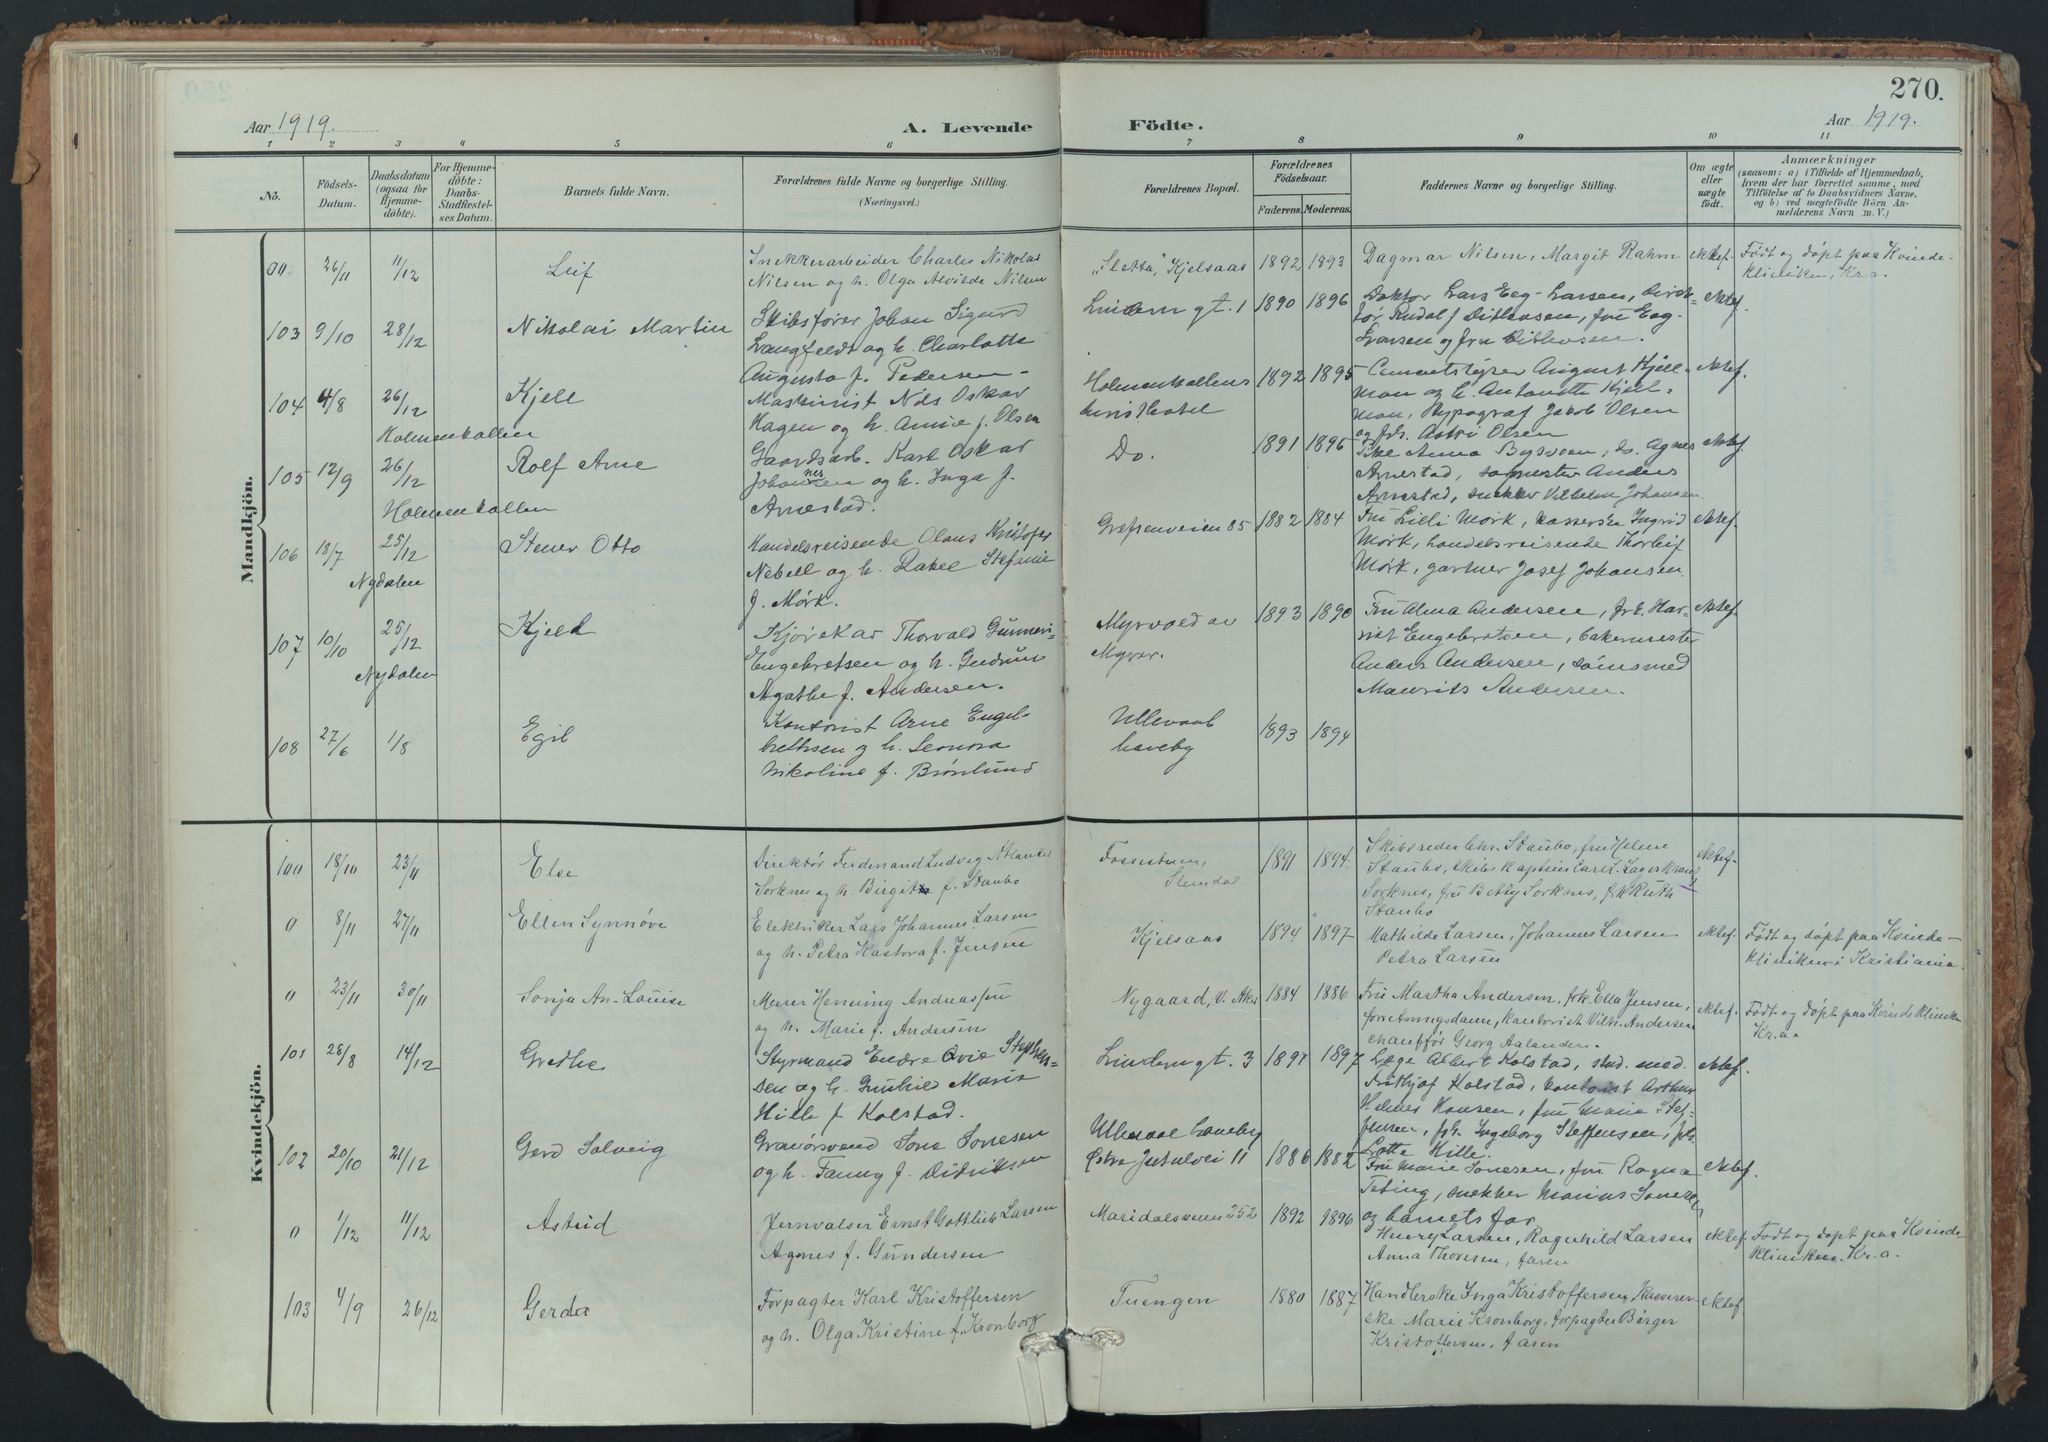 270.
Aar 1919.
A. Levende Födte.
Aar 1919.
1 2 3 4 5 6 7 8 9 10 11
No.
Födsels-Datum.
Daabsdatum (ogsaa for Hjemme-döbte).
For Hjemme-döbte: Daabs-Stadfæstel-ses Datum.
Barnets fulde Navn.
Forældrenes fulde Navne og borgerlige Stilling.
(Næringsvei.)
Forældrenes Bopæl.
Forældrenes Födselsaar.
Faderens. Moderens.
Faddernes Navne og borgerlige Stilling.
Om ægte eller uægte födt.
Anmærkninger
(saasom: a) i Tilfælde af Hjemmedaab, hvem der har forrettet samme, med Tilföielse af to Daabsvidners Navne, og b) ved uægtefödte Börn An-melderens Navn m. V.)
Mandkjön.
00 26/11 11/12 Leif
Snekkerarbeider Charles Nikolai
Nilsen og h. Olga Alvilde Nilsen
"Sletta," Kjelsaas 1892 1893
Dagmar Nilsen, Margit Rahm
Ektef.
Født og døpt paa Kvinde-
kliniken, Kr.a.
103 9/10 28/12 Nikolai Martin
Skibsfører Johan Sigurd
Langfeldt og h. Charlotte
Augusta f. Pedersen
Lindern gt. 1 1890 1896
Doktor Lars Eeg-Larsen, direk-
tør Rudolf Ditlevsen, fru Eeg-
Larsen og fru Ditlevsen.
Ektef.
104 4/8 26/12 Kjell
Holmenkollen
Maskinist Nils Oskar
Hagen og h. Annie f. Olsen
Holmenkollens
turisthotel 1892 1895
Cementstøper August Kjell-
man og h. Antonette Kjell-
man, Typograf Jakob Olsen
og frk. Astri Olsen
Ektef.
105 12/9 26/12 Rolf Arne
Holmenkollen
Gaardsarb. Karl Oskar
Johannessen og h. Inga f.
Arnestad.
Do. 1891 1896
Pike Anna Bysveen, do. Agnes
Arnestad, Anders
Arnestad, snekker Vilhelm Johansen
Ektef.
106 18/7 25/12 Stener Otto
Nydalen
Handelsreisende Olaus Kristofer
Nebell og h. Rakel Stefanie
f. Mørk.
Grefsenveien 85 1882 1884
Fru Lilli Mørk, kasserske Ingrid
Mørk, handelsreisende Thorleif
Mørk, gartner Josef Johansen.
Ektef.
107 10/10 25/12 Kjell
Nydalen
Kjørekar Thorvald Gunneri-
Engebretsen og h. Gudrun
Agathe f. Andersen.
Myrvold av
Myrer. 1893 1890
Fru Alma Andersen, frk. Har-
riet Engebretsen, bakermester
Anders Andersen, sømsmed
Maurits Andersen.
Ektef.
108 27/6 1/8 Egil
Kontorist Arne Engel-
brethsen og h. Leonora
Nikoline f. Brønlund
Ullevaal
haveby 1893 1894
Kvindekjön.
100 18/10 23/11 Else
Direktør Ferdinand Ludvig
Sorknes og h. Birgit f. Staubo
Fossestuen,
Stendal. 1891 1894.
Skibsreder Chr. Staubo, fru Helene
Staubo, skibskaptein Carl
Sorknes, fru Betsy Sorknes, frk Ruth
Staubo
Ektef.
0 8/11 27/11 Ellen Synnöve
Elektriker Lars Johannes Larsen
og h. Petra Hastora f. Jensen
Kjelsaas 1894 1897
Mathilde Larsen, Johannes Larsen
Petra Larsen
Ektef.
Født og døpt paa Kvinde-
kliniken i Kristiania.
0 23/11 30/11 Sonja An-Louise
Murer Henning Andreassen
og h. Marie f. Andersen
Nygaard, v. Aker 1884 1886
Fru Martha Andersen, frk. Ella Jensen,
forretningsdame, kontorist Vilh. Andersen
chauffør Georg Aalander.
Ektef.
Født og døpt paa Kvindeklinik
Kr.a.
101 28/8 14/12 Grethe
Styrmand Endre Qvie Stephen-
sen og h. Gunhild Marie
Hille f. Kolstad.
Lindern gt. 3 1891 1897
Læge Albert Kolstad, stud. med.
Fridtjof Kolstad, kontorist Arthur
Helmer Hansen, fru Marie Stef-
fensen, frk. Ingeborg Steffensen, frk.
Lotte Hille.
Ektef.
102 20/10 21/12 Gerd Solveig
Gravørsvend Tone Tonesen
og h. Fanny f. Didriksen
Ullevaal haveby
Østre Jutulvei 11 1886 1882
Fru Marie Tonesen, fru Ragna
Teting, snekker Marius Tonesen
og barnets far
Ektef.
0 1/12 11/12 Astrid
Jernvalser Ernst Gottlieb Larsen
Agnes f. Gundersen
Maridalsveien 252 1892 1896
Henry Larsen, Ragnhild Larsen
Anna Thoresen, faren
Ektef.
Født og døpt paa Kvinde-
kliniken. Kr.a.
103 4/9 26/12 Gerda
Forpagter Karl Kristoffersen
og h. Olga Kristine f. Kronborg
Tuengen 1880 1887
Handlerske Inga Kristoffersen, kasserer-
ske Marie Kronborg, forpagter Birger
Kristoffersen, faren
Ektef.